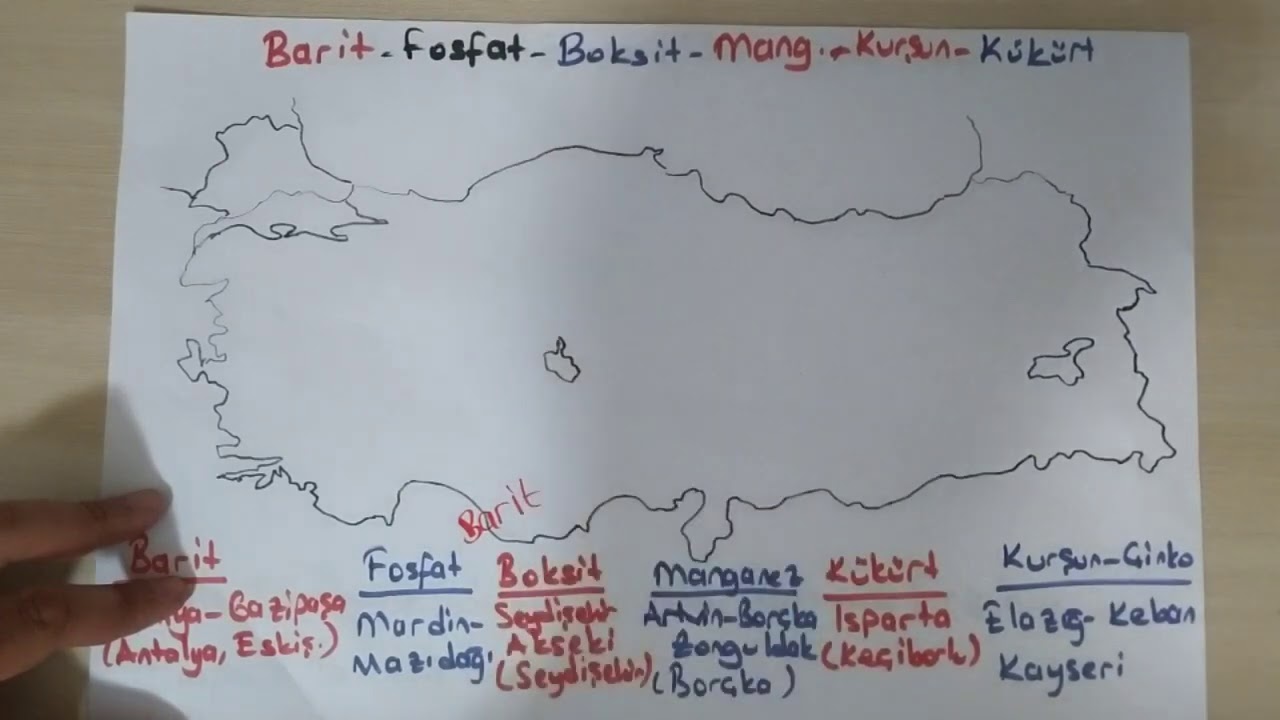 Barit - Fosfat - Boksit - Mang. - Kurşun - Kükürt
Barit
Barit
-Gazipaşa
(Antalya, Eskiş.)
Fosfat
Mardin-
Mazıdağı
Boksit
Seydişehir
Akseki
(Seydişehir)
Manganez
Artvin-Borçka
Zonguldak
(Borçka)
Kükürt
Isparta
(Keçiborlu)
Kurşun-Çinko
Elazığ-Keban
Kayseri